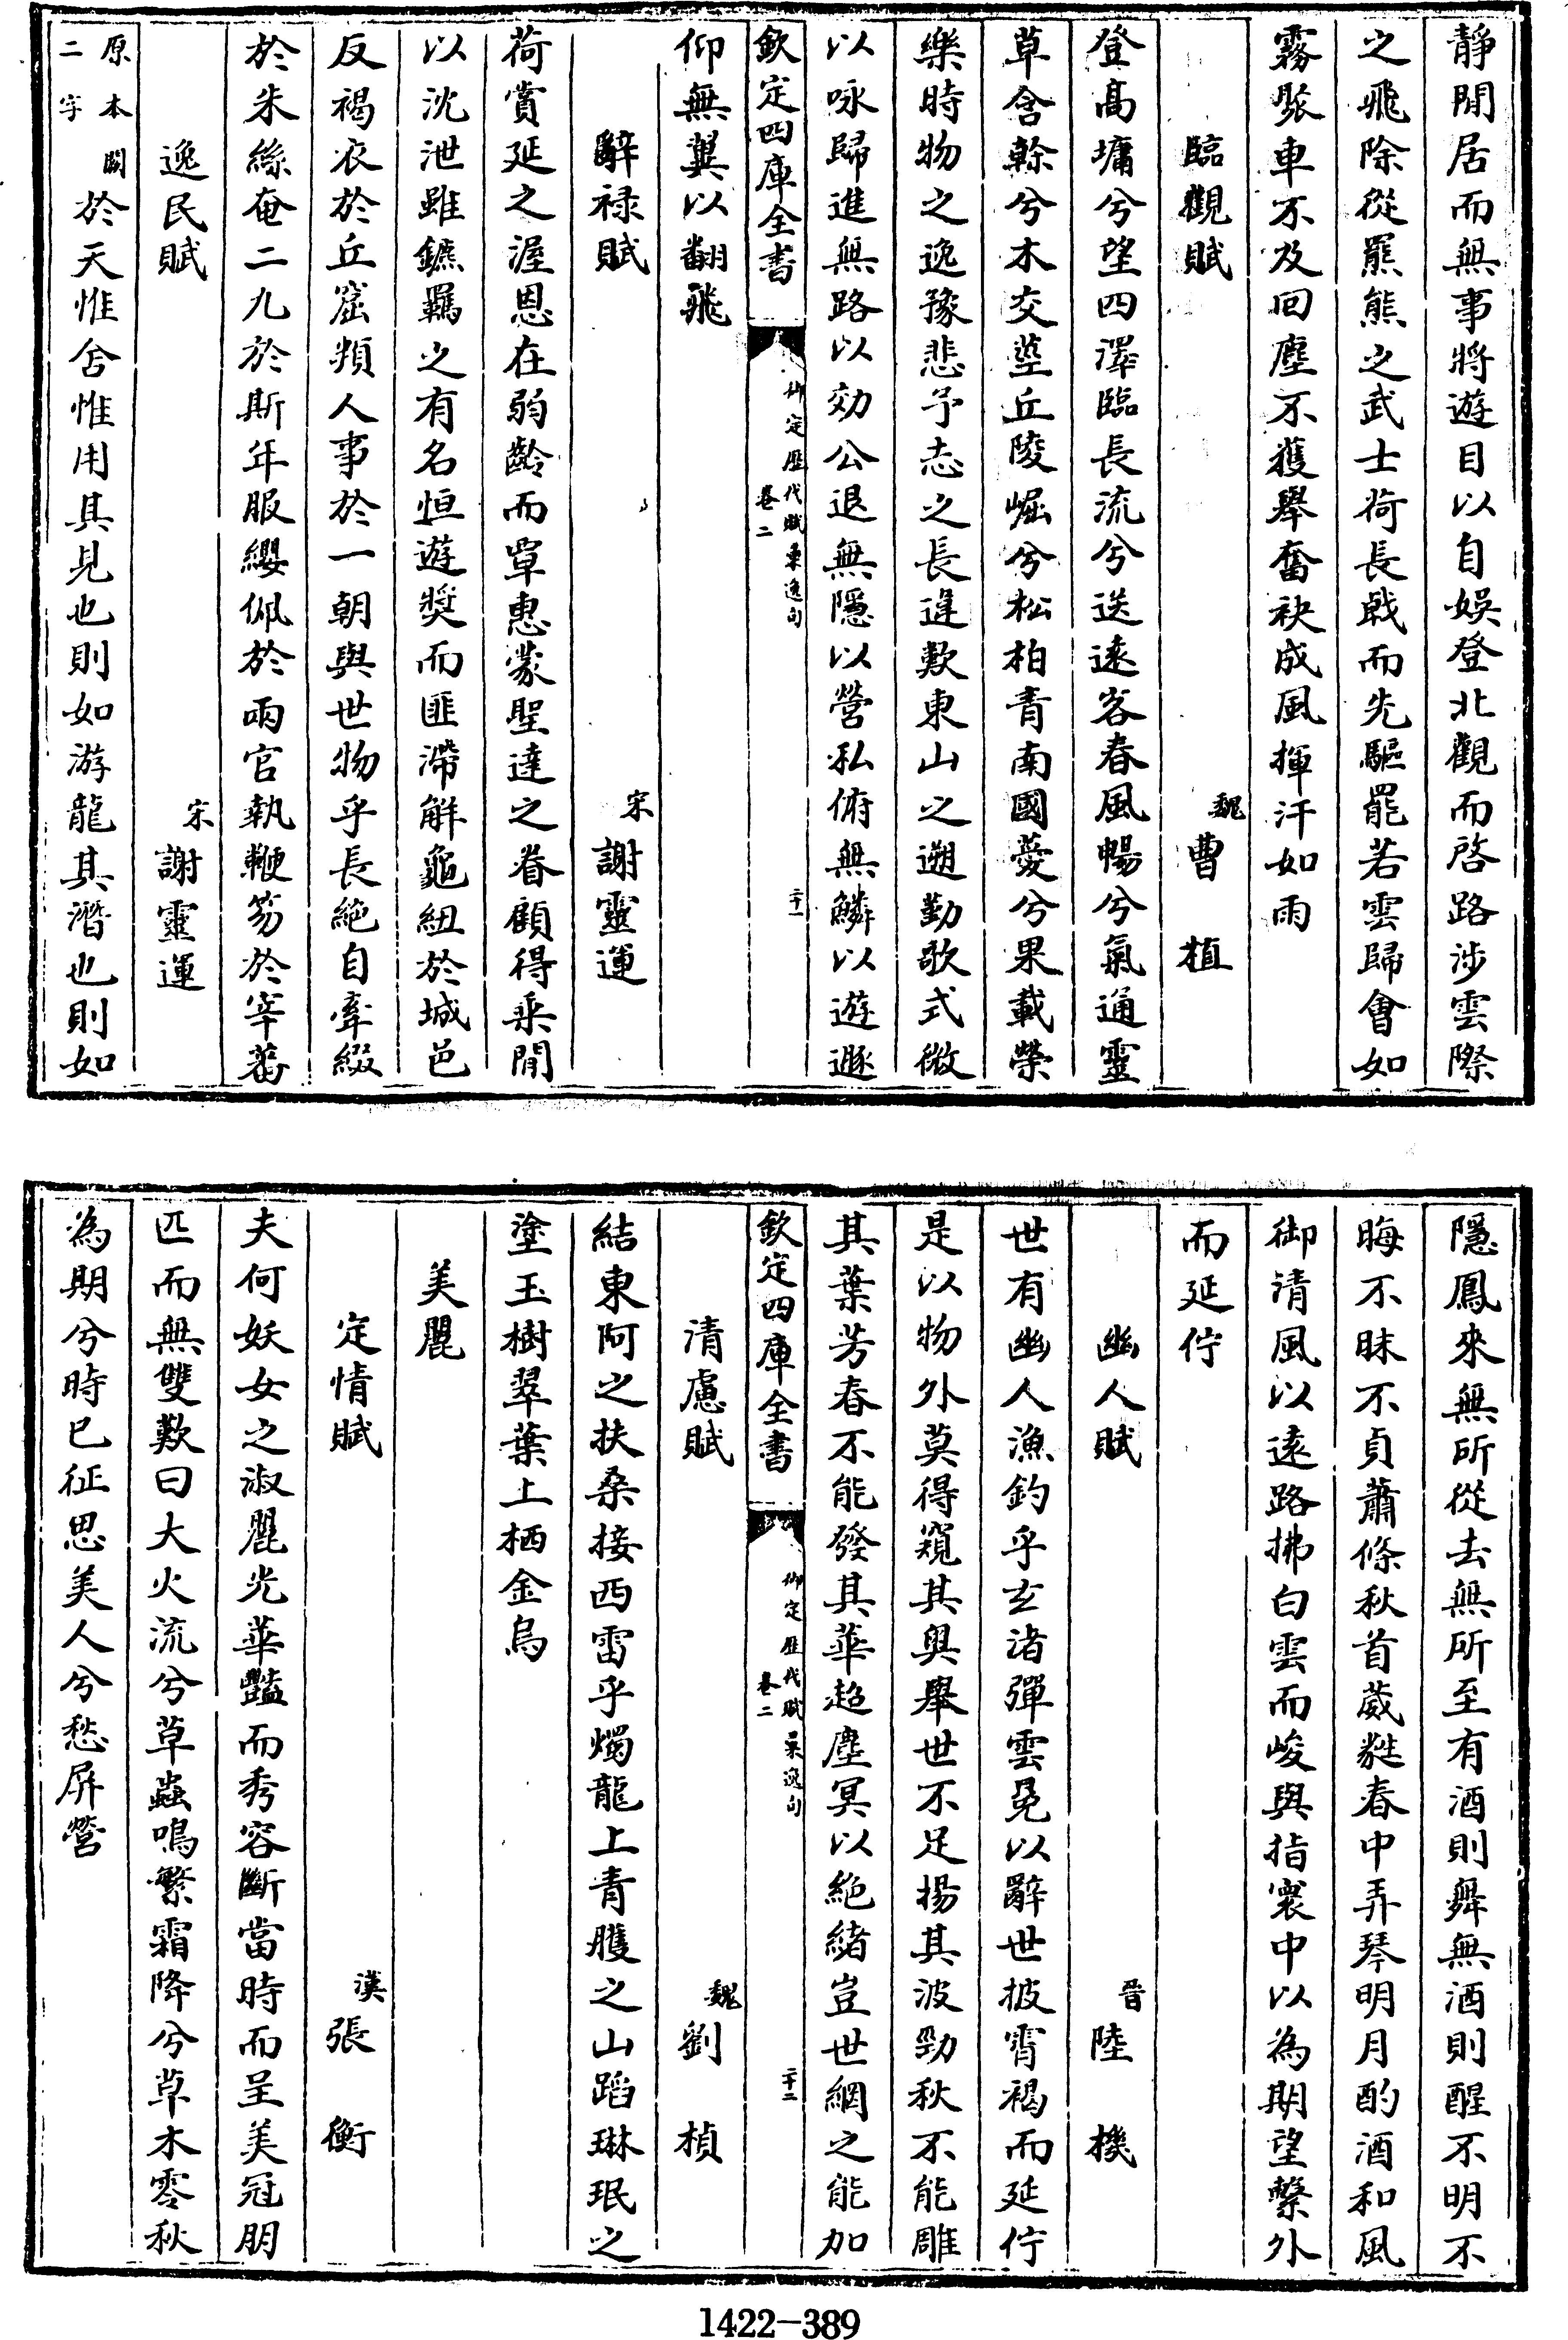 靜閒居而無事將遊目以自娛登北觀而啓路涉雲際
之飛除從羆熊之武士荷長戟而先驅罷若雲歸會如
霧聚車不及回塵不獲舉奮袂成風揮汗如雨
臨觀賦 魏 曹植
登高墉兮望四澤臨長流兮送遠客春風暢兮氣通靈
草含幹兮木交莖丘陵崛兮松柏青南國薆兮果載榮
樂時物之逸豫悲予志之長違歎東山之遡勤歌式微
以咏歸進無路以効公退無隱以營私俯無鱗以遊遯
欽定四庫全書 御定歷代賦彙逸句 卷二 二十一
仰無翼以翻飛
辭禄賦 宋 謝靈運
荷賞延之渥恩在弱齡而覃惠蒙聖達之眷顧得乘閒
以沈泄雖鑣羈之有名恒遊獎而匪滯解龜紐於城邑
反褐衣於丘窟頻人事於一朝與世物乎長絶自牽綴
於朱絲奄二九於斯年服纓佩於兩官執鞭笏於宰蕃
逸民賦 宋 謝靈運
原本闕二字於天惟舍惟用其見也則如游龍其潛也則如
隱鳳來無所從去無所至有酒則舞無酒則醒不明不
晦不昧不貞蕭條秋首葳蕤春中弄琴明月酌酒和風
御清風以遠路拂白雲而峻與指寰中以為期望繫外
而延佇
幽人賦 晉 陸機
世有幽人漁釣乎玄渚彈雲冕以辭世披霄褐而延佇
是以物外莫得窺其奥舉世不足揚其波勁秋不能雕
其葉芳春不能發其華超塵冥以絶緒豈世網之能加
欽定四庫全書 御定歷代賦彙逸句 卷二 二十二
清慮賦 魏 劉楨
結東阿之扶桑接西雷乎燭龍上青雘之山蹈琳珉之
塗玉樹翠葉上栖金烏
美麗
定情賦 漢 張衡
夫何妖女之淑麗光華豔而秀容斷當時而呈美冠朋
匹而無雙歎曰大火流兮草蟲鳴繁霜降兮草木零秋
為期兮時已征思美人兮愁屏營
1422-389